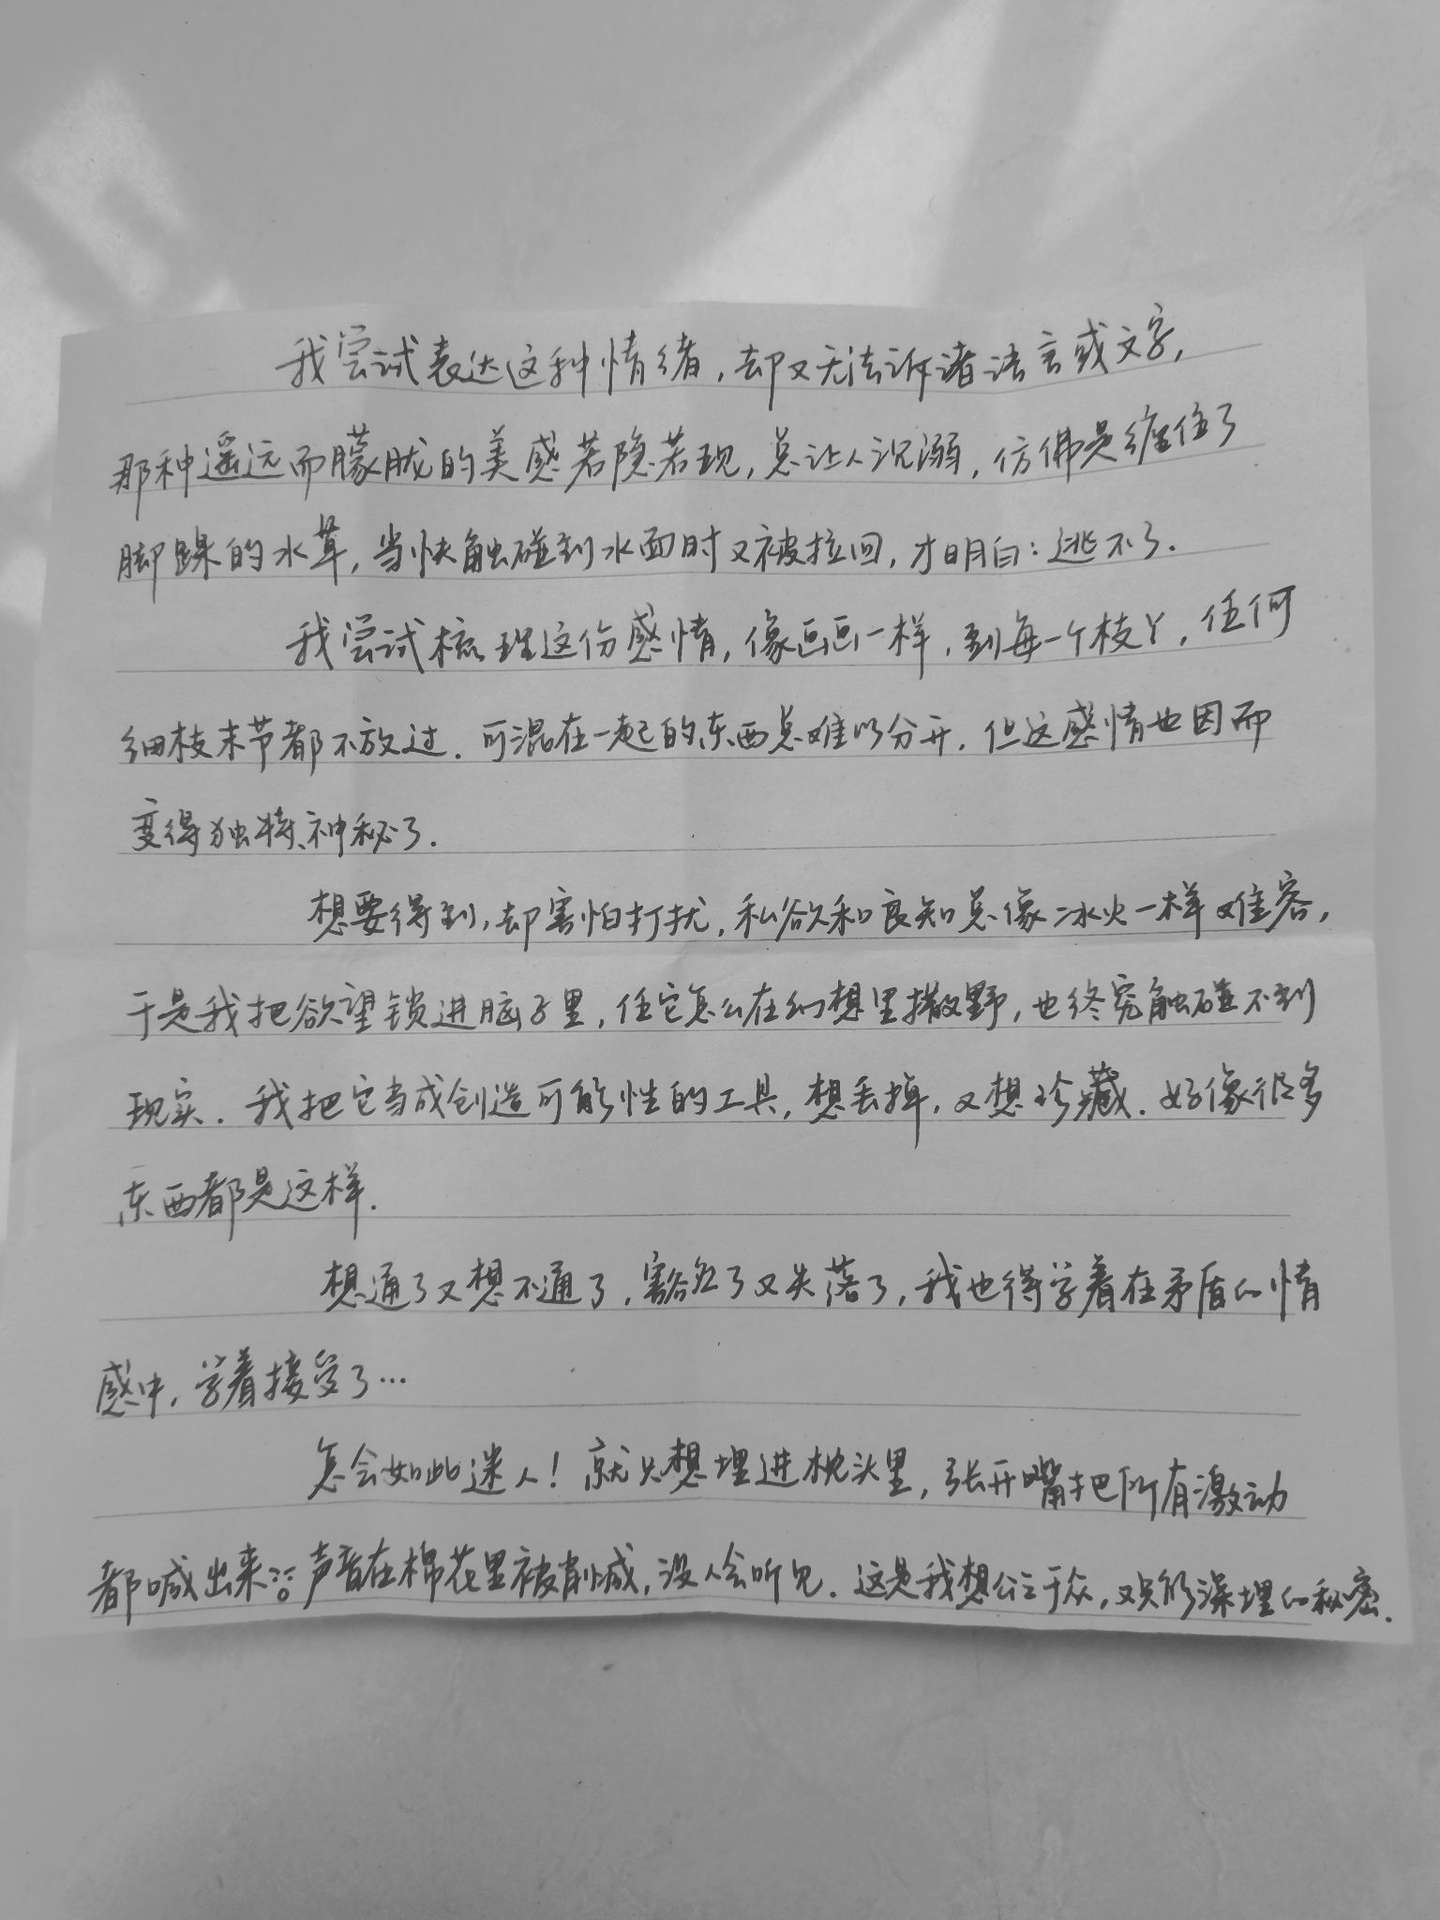 我尝试表达这种情绪，却又无法诉诸语言或文字，
那种遥远而朦胧的美感若隐若现，总让人沉溺，仿佛是缠住了
脚踝的水草，当快触碰到水面时又被拉回，才明白：逃不了.
我尝试梳理这份感情，像画画一样，到每一个枝丫，任何
细枝末节都不放过.可混在一起的东西总难以分开.但这感情也因而
变得独特、神秘了.
想要得到，却害怕打扰，私欲和良知总像冰火一样难容，
于是我把欲望锁进脑子里，任它怎么在幻想里撒野，也终究触碰不到
现实.我把它当成创造可能性的工具，想丢掉，又想珍藏.好像很多
东西都是这样.
想通了又想不通了，豁然了又失落了，我也得学着在矛盾的情
感中，学着接受了…
怎会如此迷人！就只想埋进枕头里，张开嘴把所有激动
都喊出来 声音在棉花里被削减，没人会听见.这是我想公之于众，又只能深埋的秘密.